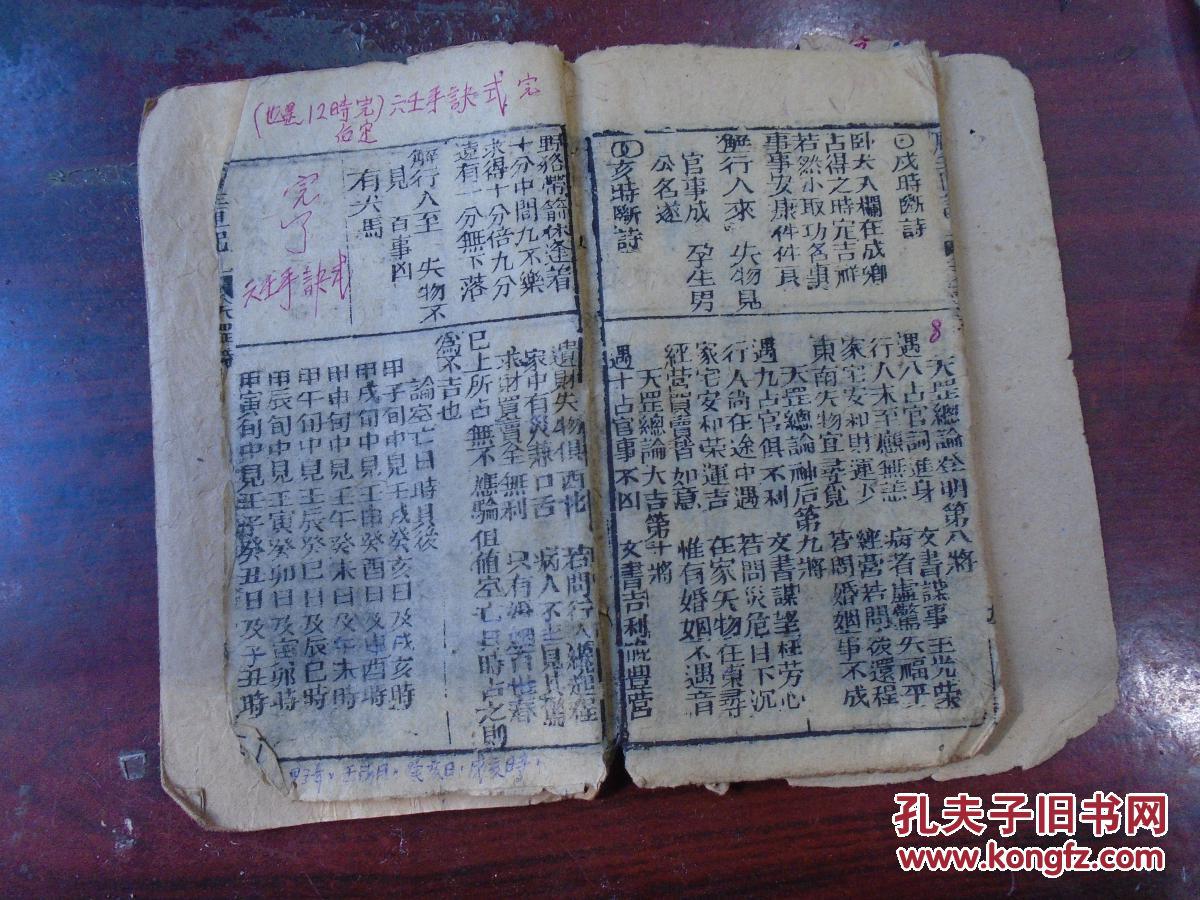 戌時斷詩
卧犬入欄在戍鄉
占得之時定吉祥
若然小取功名事
事事安康件件良
解行人來 失物見
官事成 孕生男
公名遂
亥時斷詩
野豬帶箭休逢着
十分中間九不樂
求得十分倍九分
遠有一分無下落
解行人至 失物不
見 百事凶
有犬馬
8
天罡總論登明第八將
遇八占官詞進身 文書謀事主光榮
行人未至應無恙 病者虛驚失福平
家宅安和財運下 經營若問役還程
東南失物宜尋覓 若問婚姻事不成
天罡總論神后第九將
遇九占官俱不利 文書謀望枉劳心
行人尚在途中遇 若問災危日下沉
家宅安和荣運吉 在家失物往東尋
經營買賣皆如意 惟有婚姻不遇音
天罡總論大吉第十將
遇十占官事不凶 文書吉利
遺財失物俱西北 若問行人
家中有災兼口舌 病人不
求財買賣全無利 只有婚姻
已上所占無不應驗但值空亡日時占之則
為不吉也
論空亡日時具後
甲子旬中見壬戌癸亥日及戌亥時
甲戌旬中見壬申癸酉日及申酉時
甲申旬中見壬午癸未日及午未時
甲午旬中見壬辰癸巳日及辰巳時
甲辰旬中見壬寅癸卯日及寅卯時
甲寅旬中見壬子癸丑日及子丑時
12時完)六壬手訣式 完
完了
六壬手訣式
孔夫子旧书网
www.kongfz.com